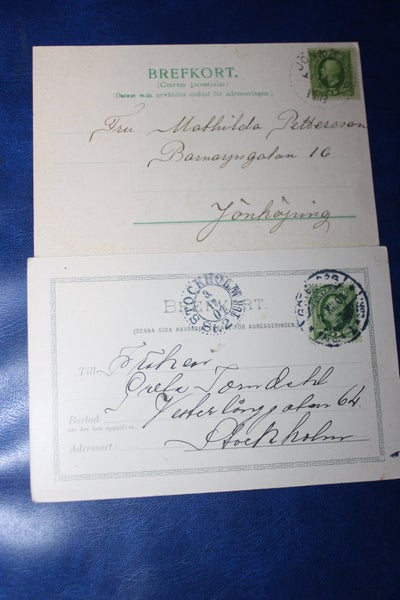 BREFKORT.
(Carte postale)
(Denna sida användes endast för adresseringen.)
Fru Mathilda Pettersson
Barnarpsgatan 16
Jönköping
BREFKORT.
(DENNA SIDA ANVÄNDES FÖR ADRESSERINGEN)
STOCKHOLM
Till
Fröken
Greta Törndahl
Bostad
om den kan uppgifvas
Vesterlånggatan 64
Adressort:
Stockholm